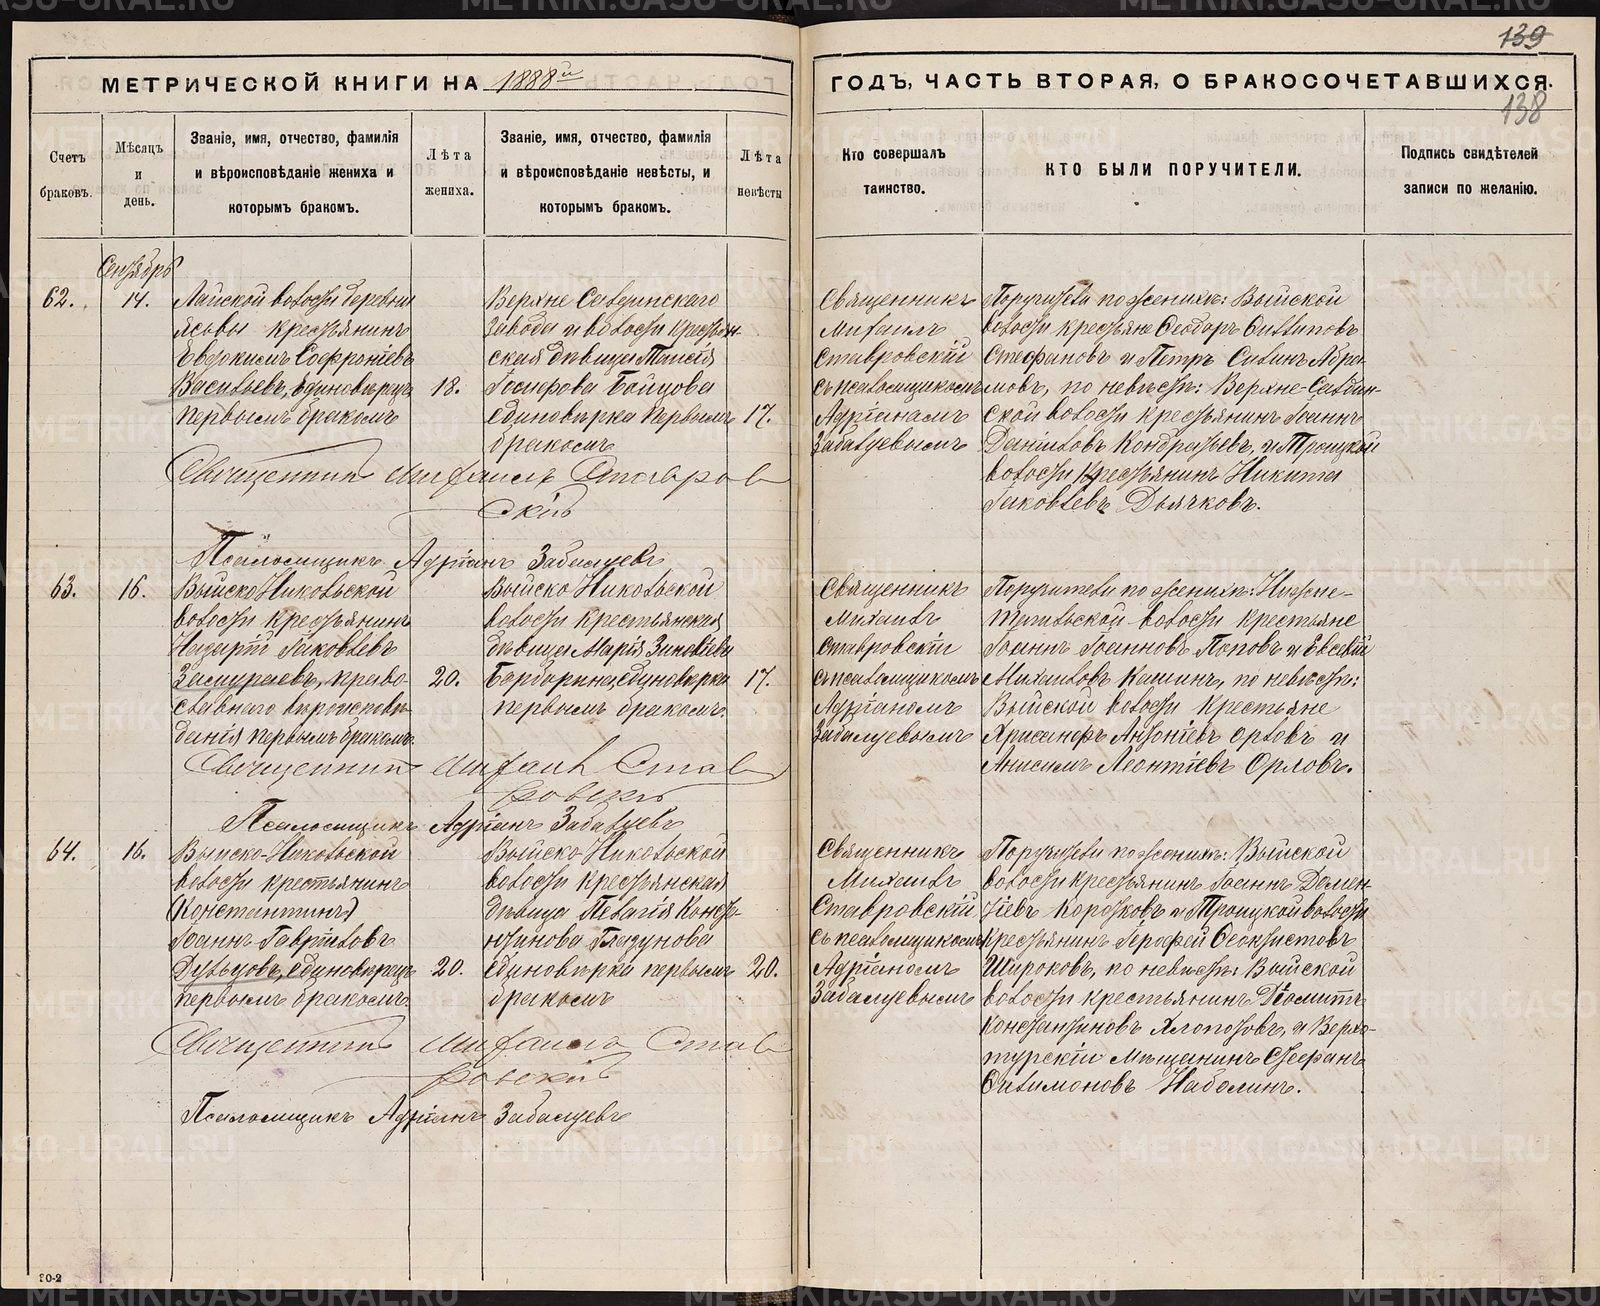 139
МЕТРИЧЕСКОЙ КНИГИ НА 1888й
ГОДЪ, ЧАСТЬ ВТОРАЯ, О БРАКОСОЧЕТАВШИХСЯ.
138
Счетъ
браковъ.
Мѣсяцъ
и
день.
Званіе, имя, отчество, фамилія
и вѣроисповѣданіе жениха и
которымъ бракомъ.
Лѣта
жениха.
Званіе, имя, отчество, фамилія
и вѣроисповѣданіе невѣсты, и
которымъ бракомъ.
Лѣта
невѣсты
Кто совершалъ
таинство.
КТО БЫЛИ ПОРУЧИТЕЛИ.
Подпись свидѣтелей
записи по желанію.
62.
14.
Лайской волости деревни
крестьянинъ
Софроніевъ
Васильевъ, единовѣрецъ
первымъ бракомъ
18.
Верхне Салдинскаго
завода и волости крестьян-
ская дѣвица Таисія
Бойцова
единовѣрка первымъ
бракомъ
17.
Священникъ
Михаилъ
Ставровскій
съ псаломщикомъ
Адріаномъ
Забалуевымъ
Поручители по женихѣ: Выйской
волости крестьяне Ѳеодоръ Филипповъ
Стефановъ и Петръ Савинъ Абра-
мовъ, по невѣстѣ: Верхне-Салдин-
ской волости крестьянинъ Іоаннъ
Даніиловъ Кондратьевъ, и Троицкой
волости крестьянинъ Никита
Іаковлевъ Дьячковъ.
Священникъ Михаилъ Ставров
скій
Псаломщикъ Адріанъ Забалуевъ
63.
16.
Выйско Никольской
волости крестьянинъ
Назарій Іаковлевъ
право-
славнаго вѣроисповѣ-
данія первымъ бракомъ.
20.
Выйско Никольской
волости крестьянская
дѣвица Марія Зиновіева
единовѣрка
первымъ бракомъ.
17.
Священникъ
Михаилъ
Ставровскій
съ псаломщикомъ
Адріаномъ
Забалуевымъ
Поручители по женихѣ: Нижне-
тагильской волости крестьяне
Іоаннъ Іоанновъ Поповъ и Евсевій
Михаиловъ Кашинъ, по невѣстѣ:
Выйской волости крестьяне
Хрисанфъ Антоніевъ Орловъ и
Анисимъ Леонтіевъ Орловъ.
Священникъ Михаилъ Став
ровскій
Псаломщикъ Адріанъ Забалуевъ
64.
16.
Выйско-Никольской
волости крестьянинъ
(Константинъ)
Іоаннъ Гавріиловъ
единовѣрецъ
первымъ бракомъ
20.
Выйско-Никольской
волости крестьянская
дѣвица Пелагія Конста-
нтинова Глазунова
единовѣрка первымъ
бракомъ
20.
Священникъ
Михаилъ
Ставровскій
съ псаломщикомъ
Адріаномъ
Забалуевымъ
Поручители по женихѣ: Выйской
волости крестьянинъ Іоаннъ Домен-
тіевъ Коротковъ и Троицкой волости
крестьянинъ Іерофей Ѳеоктистовъ
Широковъ, по невѣстѣ: Выйской
волости крестьянинъ
Константиновъ Хлопотовъ, и Верхо-
турскій мѣщанинъ Стефанъ
Филимоновъ Наболинъ.
Священникъ Михаилъ Став
ровскій
Псаломщикъ Адріанъ Забалуевъ
METRIKI.GASO-URAL.RU